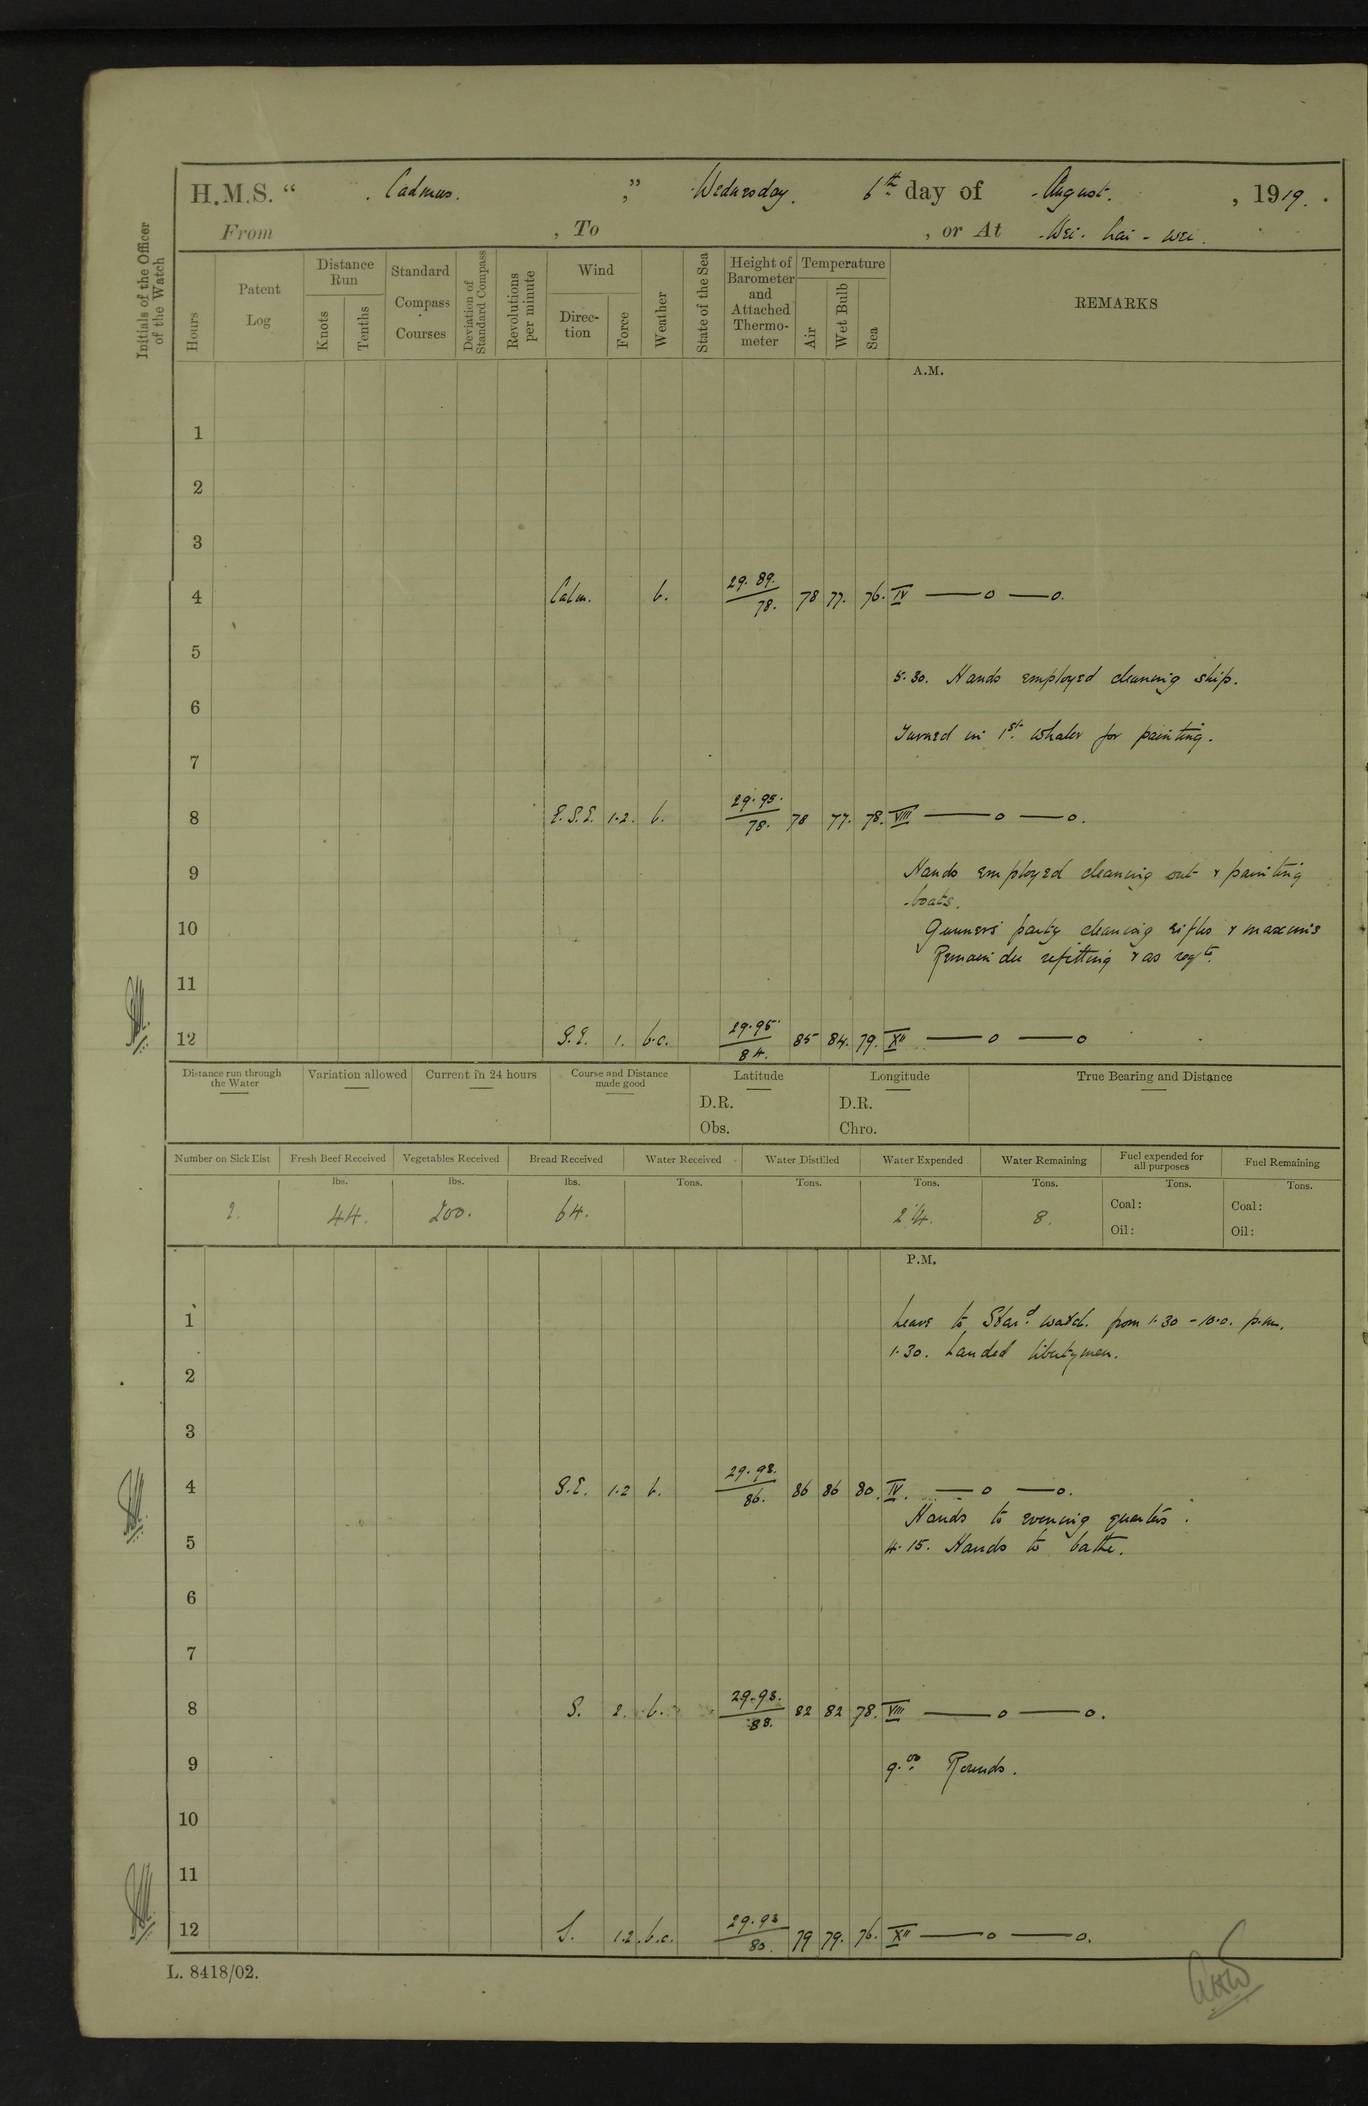 H.M.S. “ Cadmus. ,” Wednesday. 6th day of August. , 1919.
From , To , or At Wei-hai-wei.
Initials of the Officer of the Watch
Hours
Patent Log
Distance Run
Knots
Tenths
Standard Compass Courses
Deviation of Standard Compass
Revolutions per minute
Wind
Direction
Force
Weather
State of the Sea
Height of Barometer and Attached Thermometer
Temperature
Air
Wet Bulb
Sea
REMARKS
A.M.
1
2
3
4 Calm. b. 29.89. 78. 78 77. 76. IV —— o —— o.
5
5.30. Hands employed cleaning ship.
6
Turned in 1st. whaler for painting.
7
8 E.S.E. 1.2. b. 29.95. 78. 78 77. 78. VIII —— o —— o.
9 Hands employed cleaning out & painting
boats.
10 Gunners party cleaning rifles & maxims
Remainder refitting & as reqte.
11
12 S.E. 1. b.c. 29.95 84. 85 84. 79. XII —— o —— o
Distance run through the Water
Variation allowed
Current in 24 hours
Course and Distance made good
Latitude
D.R.
Obs.
Longitude
D.R.
Chro.
True Bearing and Distance
Number on Sick List
Fresh Beef Received
Vegetables Received
Bread Received
Water Received
Water Distilled
Water Expended
Water Remaining
Fuel expended for all purposes
Fuel Remaining
lbs. lbs. lbs. Tons. Tons. Tons. Tons. Tons. Tons.
2. 44. 200. 64. 2.4. 8.
Coal: Coal:
Oil: Oil:
P.M.
1 Leave to Stard. watch. from 1.30 - 10.0. p.m.
1.30. Landed libertymen.
2
3
4 S.E. 1.2 b. 29.93. 86. 86 86 80. IV. —— o —— o.
Hands to evening quarters.
5 4.15. Hands to bathe.
6
7
8 S. 2. b. 29.93. 83. 82 82 78. VIII —— o —— o.
9 9.00 Rounds.
10
11
12 S. 1.2. b.c. 29.93 80. 79 79. 76. XII —— o —— o.
L. 8418/02.